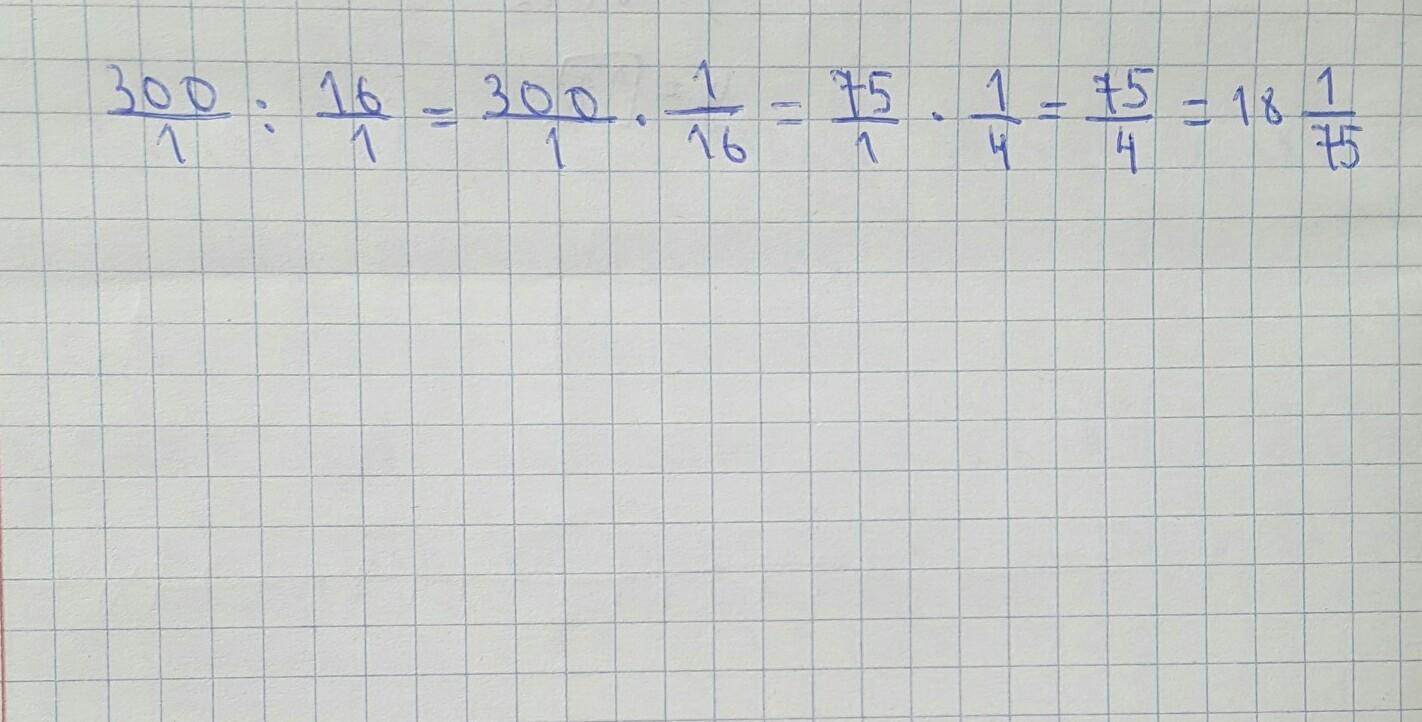 300/1 : 16/1 = 300/1 · 1/16 = 75/1 · 1/4 = 75/4 = 18 1/75